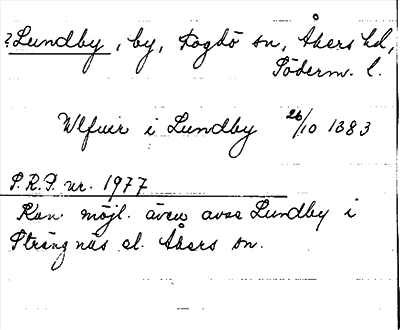 ? Lundby, by, Fogdö sn, Åkers hd,
Söderm. l.
Ulfuir i Lundby 26/10 1383
S.R.P. nr. 1977
Kan möjl. även avse Lundby i
Strängnäs el. Åkers sn.